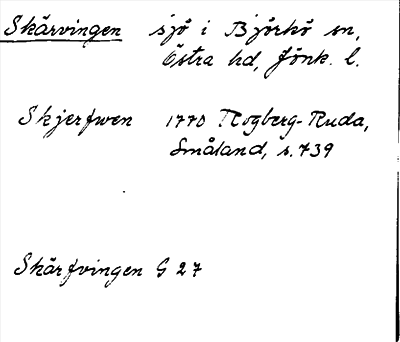 Skärvingen sjö i Björkö sn,
Östra hd, Jönk. l.
Skjerfwen 1770 Rogberg-Ruda,
Småland, s. 739
Skärfvingen G 27